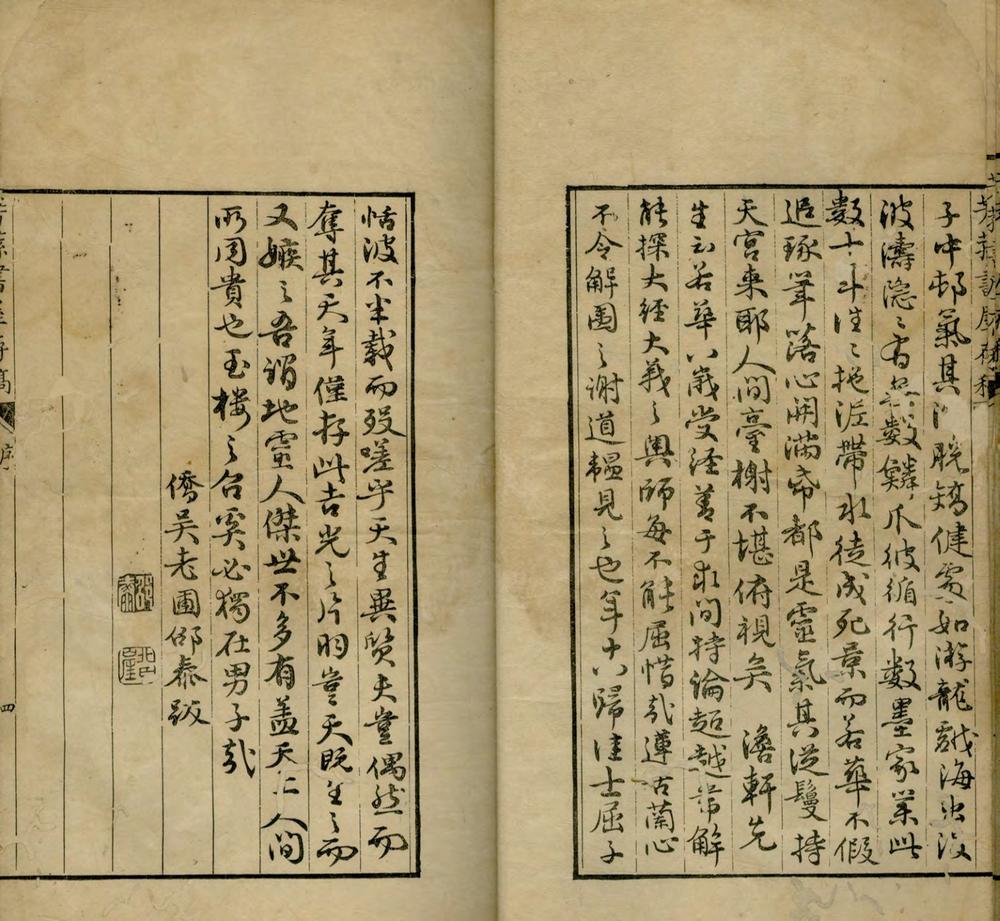 子中邨氣其江脱矯健處如游龍戲海出没
波濤隐之有無數鱗爪彼循行數墨家業此
數十斗往之拖泥帶水徒成死景而若華不假
追琢筆落心開滿希都是靈氣其從鬘持
天宮来耶人間臺榭不堪俯視矣　澹軒先
生曰若華八歲受經善于求間持論超越常解
能探大經大義之輿師每不能屈惜哉遵古蘭心
不令解圍之谢道韞見之也年十八歸佳士屈子
恬波不半載而殁嗟乎天生異質夫豈偶然而
奪其天年僅存此吉光之片羽豈天既生之而
又嫉之吾謂地靈人傑世不多有蓋天上人間
所同貴也玉樓之召奚必獨在男子哉
僑吴老圃邵泰跋
序
四